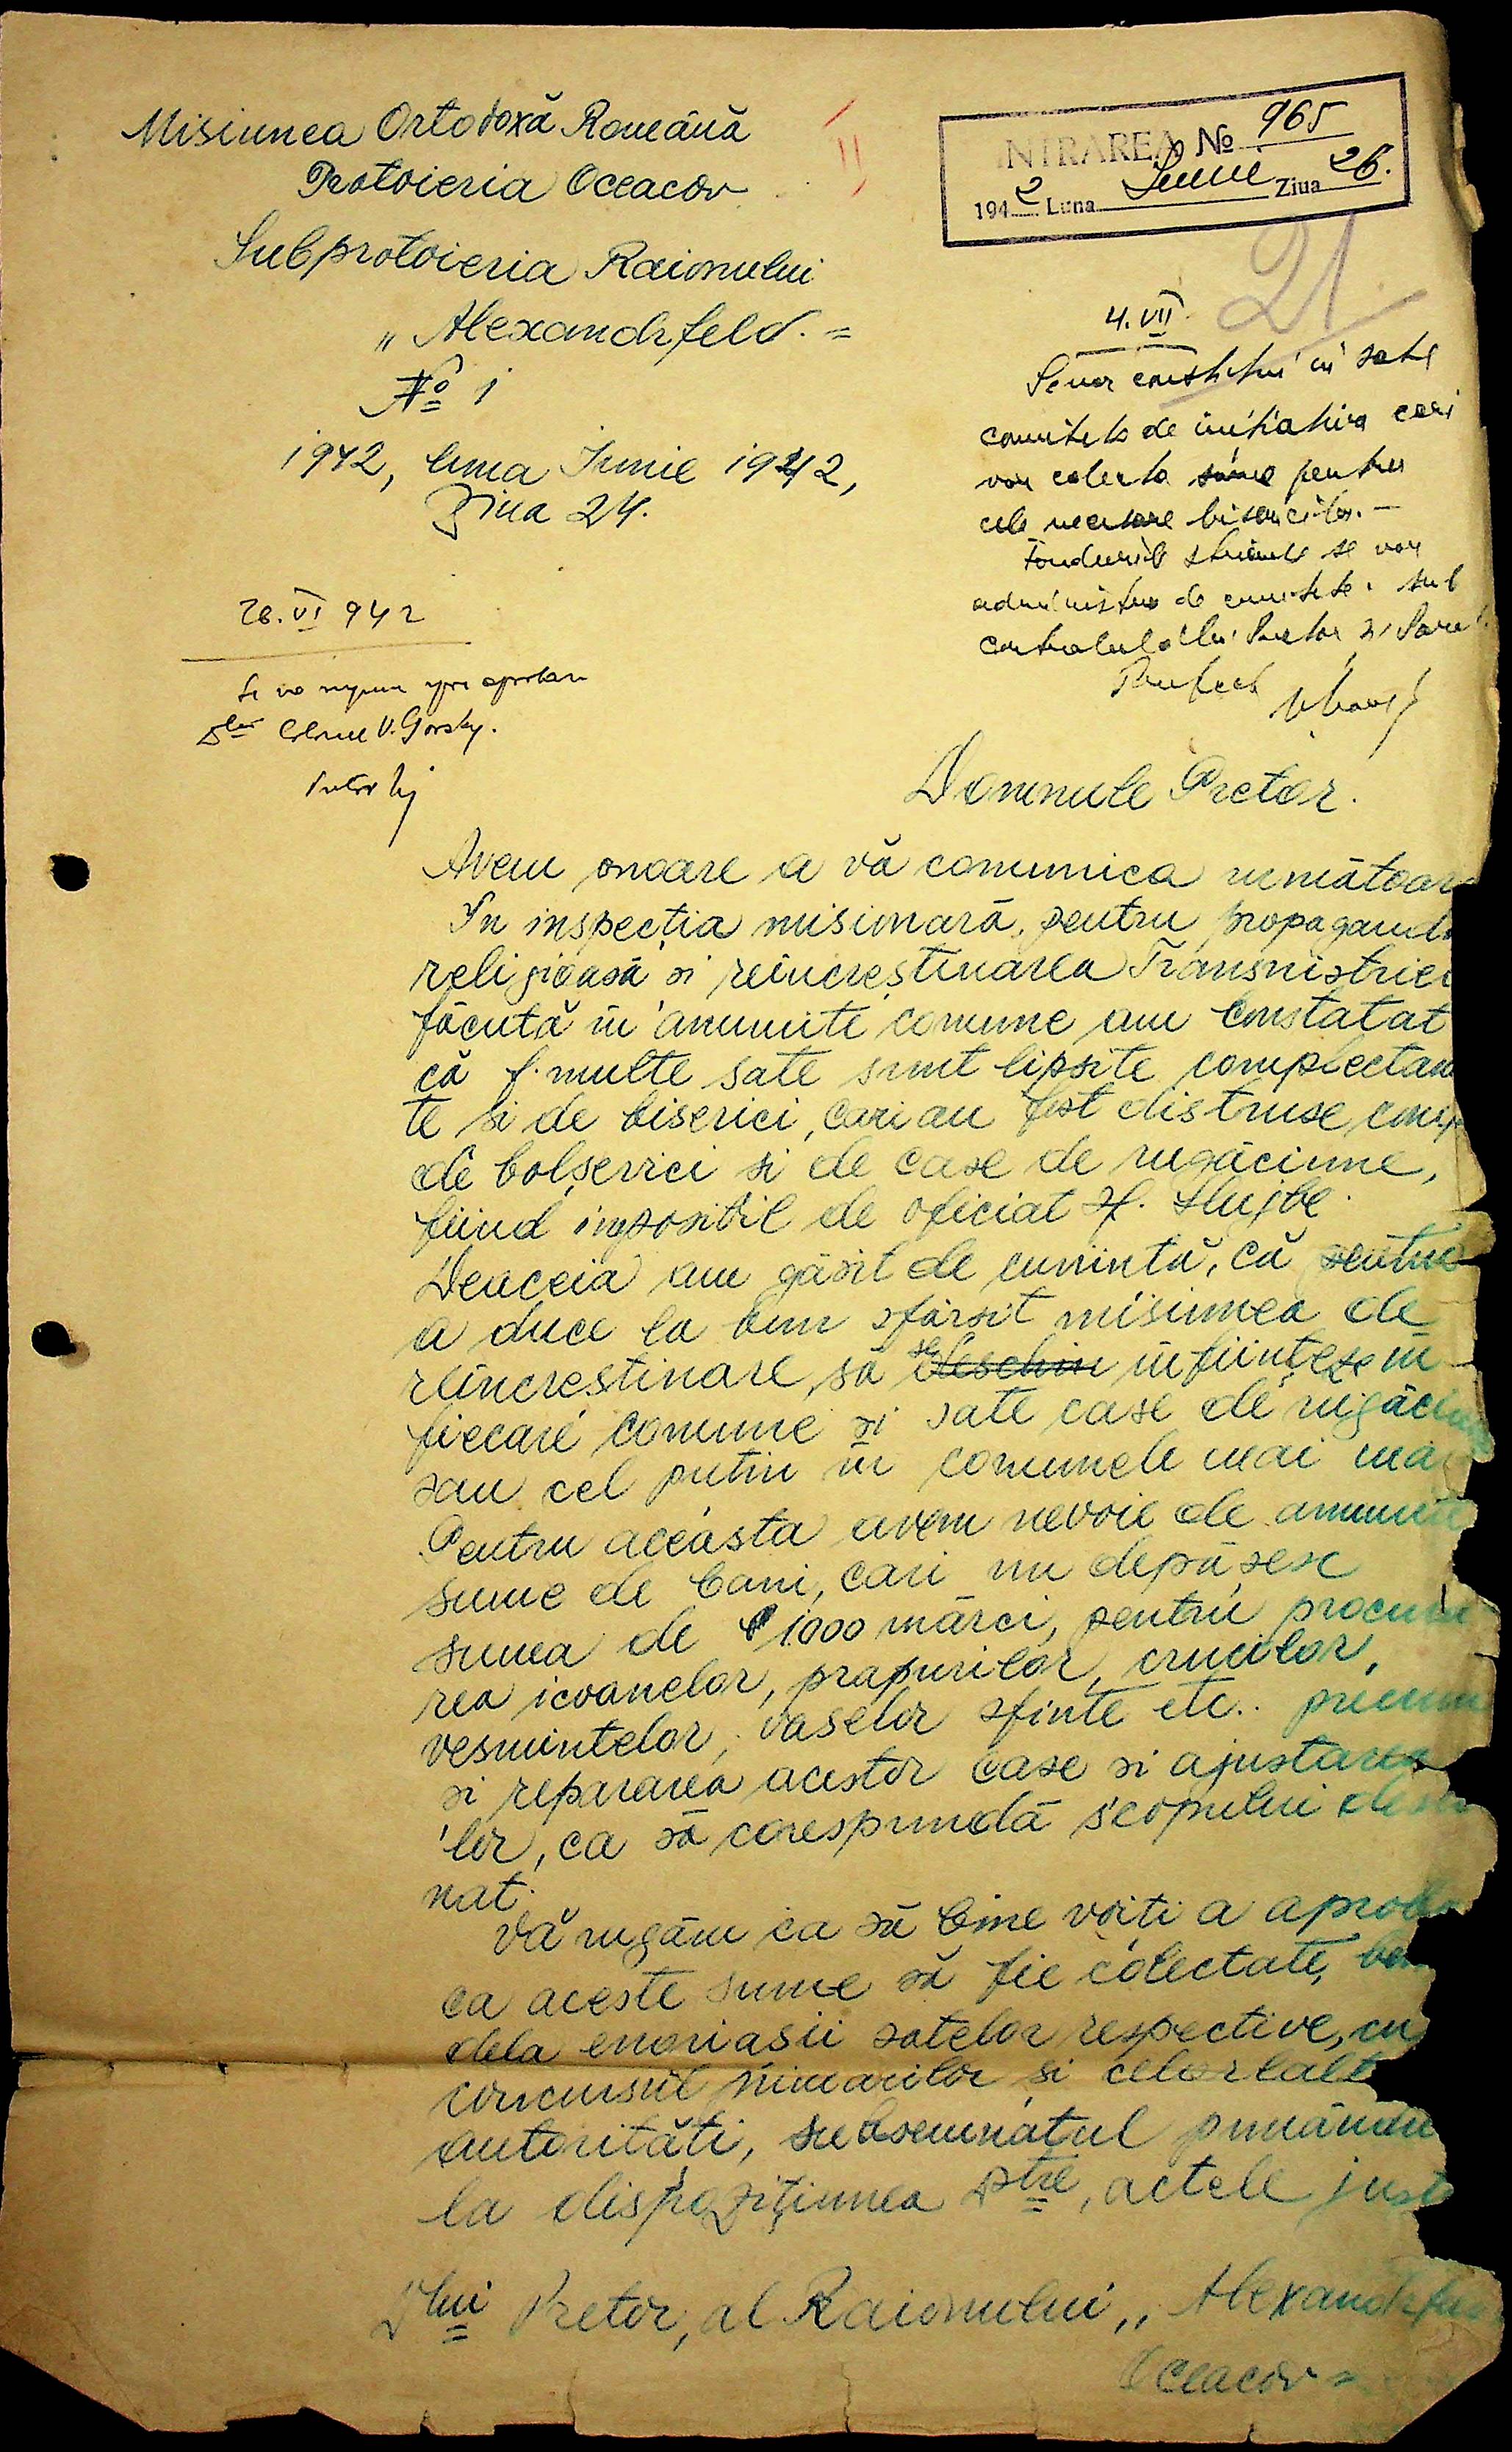 Misiunea Ortodoxă Română
Protoieria Oceacov
Subprotoieria Raionului
„Alexandrfeld. =
No 1
1942, luna Iunie 1942,
Ziua 24.
INTRAREA No 965
1942 Luna Iunie Ziua 26.
21
II
4.VII
Se vor constitui in sate
comitete de inițiativa cari
vor colecta sume pentru
cele necesare bisericilor. –
Fondurile strânse se vor
administra de comitete sub
controlul Pretor și
Prefect
26.VI 942
Se va spre aprobare
Dlui Colonel V. Gorsky.
Pretor
Domnule Pretor.
Avem onoare a vă comunica următoar
In inspecția misionară, pentru propagand
religioasă si reîncreștinarea Transnistriei
făcută în anumite comune am constatat
că f. multe sate sunt lipsite complectam
te si de biserici, cari au fost distruse
de bolșevici si de case de rugăciune,
fiind imposibil de oficiat Sf. Slujbe.
Deaceia am găsit de cuviintă, că pentru
a duce la bun sfârsit misiunea de
reîncrestinare, să se deschin înființeze în
fiecare comune si sate case de rugăciu
sau cel putin in comunele mai ma
Pentru aceasta avem nevoie de anumite
sume de bani, cari nu depășesc
suma de 1000 mărci, pentru procura
rea icoanelor, prapurilor, crucilor,
vesmintelor, vaselor sfinte etc.. precum
si repararea acestor case si ajustarea
lor, ca să corespundă scopului desti
nat.
Vă rugăm ca să bine voiti a aproba
ca aceste sume să fie colectate,
dela enoriasii satelor respective, cu
concursul primarilor si celorlalt
autorităti, subsemnatul punându
la dispozițiunea Dtre, actele just
Dlui Pretor, al Raionului „Alexandrfel
Oceacov =